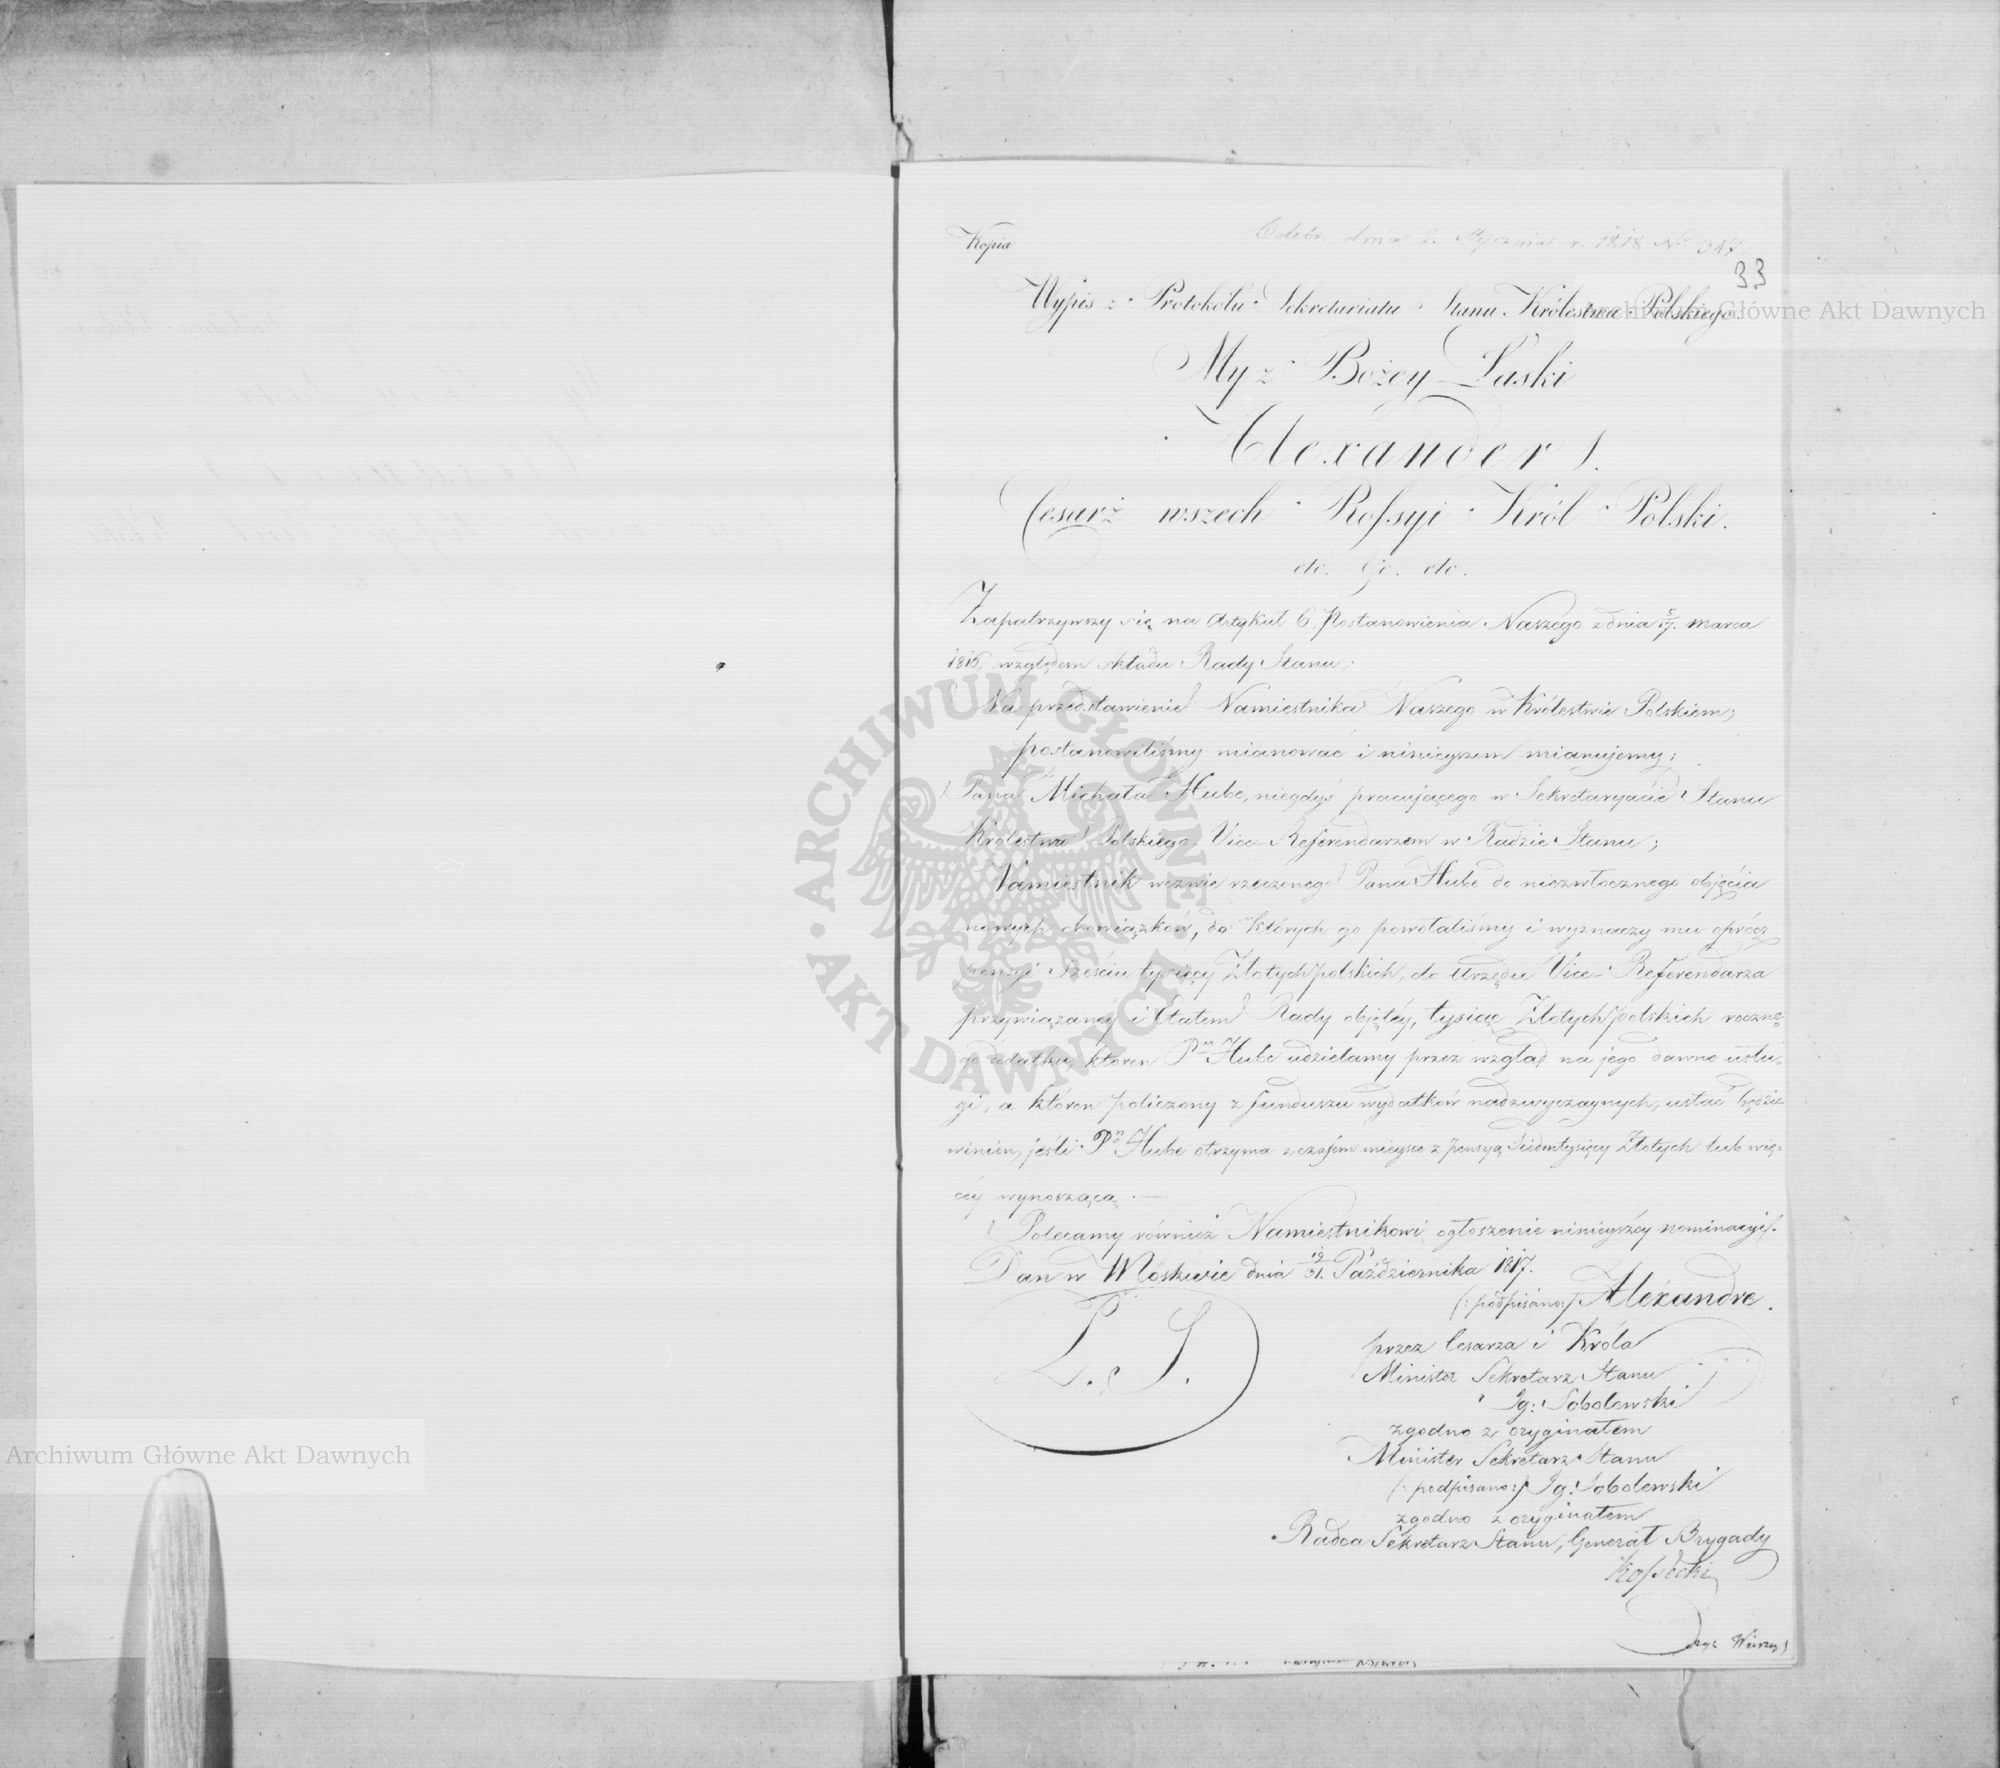 Kopia
Odebr. dnia 2. Stycznia r. 1818 Nr 347
33
Wypis z Protokółu Sekretariatu Stanu Królestwa Polskiego.
My z Bożey Łaski
Alexander I.
Cesarz wszech Rossyi Król Polski.
etc. etc. etc.
Zapatrzywszy się na Artykuł 6 Postanowienia Naszego z dnia 5/17. marca
1816, względem składu Rady Stanu;
Na przedstawienie Namiestnika Naszego w Królestwie Polskiem;
postanowiliśmy mianować i ninieyszem mianujemy;
Pana Michała Hube, niegdyś pracującego w Sekretaryacie Stanu
Królestwa Polskiego, Vice-Referendarzem w Radzie Stanu;
Namiestnik wezwie rzeczonego Pana Hube do niezwłocznego objęcia
nowych obowiązków, do których go powołaliśmy i wyznaczy mu oprócz
pensyi sześciu tysięcy Złotych polskich, do Urzędu Vice-Referendarza
przywiązanéy i Etatem Rady objętéy, tysiąc Złotych polskich roczne-
go dodatku, któren Pnu Hube udzielamy przez wzgląd na jego dawne usłu-
gi, a któren policzony z funduszu wydatków nadzwyczaynych, ustać będzie
winien, jeśli Pn Hube otrzyma z czasem mieysce z pensyą Siedmtysięcy Złotych lub wię-
céy wynoszącą. —
Polecamy również Namiestnikowi ogłoszenie ninieyszéy nominacyi.
Dan w Moskwie dnia 19/31. Października 1817.
(: podpisano:) Alexandre.
L. S.
przez Cesarza i Króla
Minister Sekretarz Stanu
Ig: Sobolewski
zgodno z oryginałem
Minister Sekretarz Stanu
(: podpisano:) Ig: Sobolewski
zgodno z oryginałem
Radca Sekretarz Stanu, Generał Brygady
Kossecki
Archiwum Główne Akt Dawnych
Archiwum Główne Akt Dawnych
· ARCHIWUM GŁÓWNE · AKT DAWNYCH